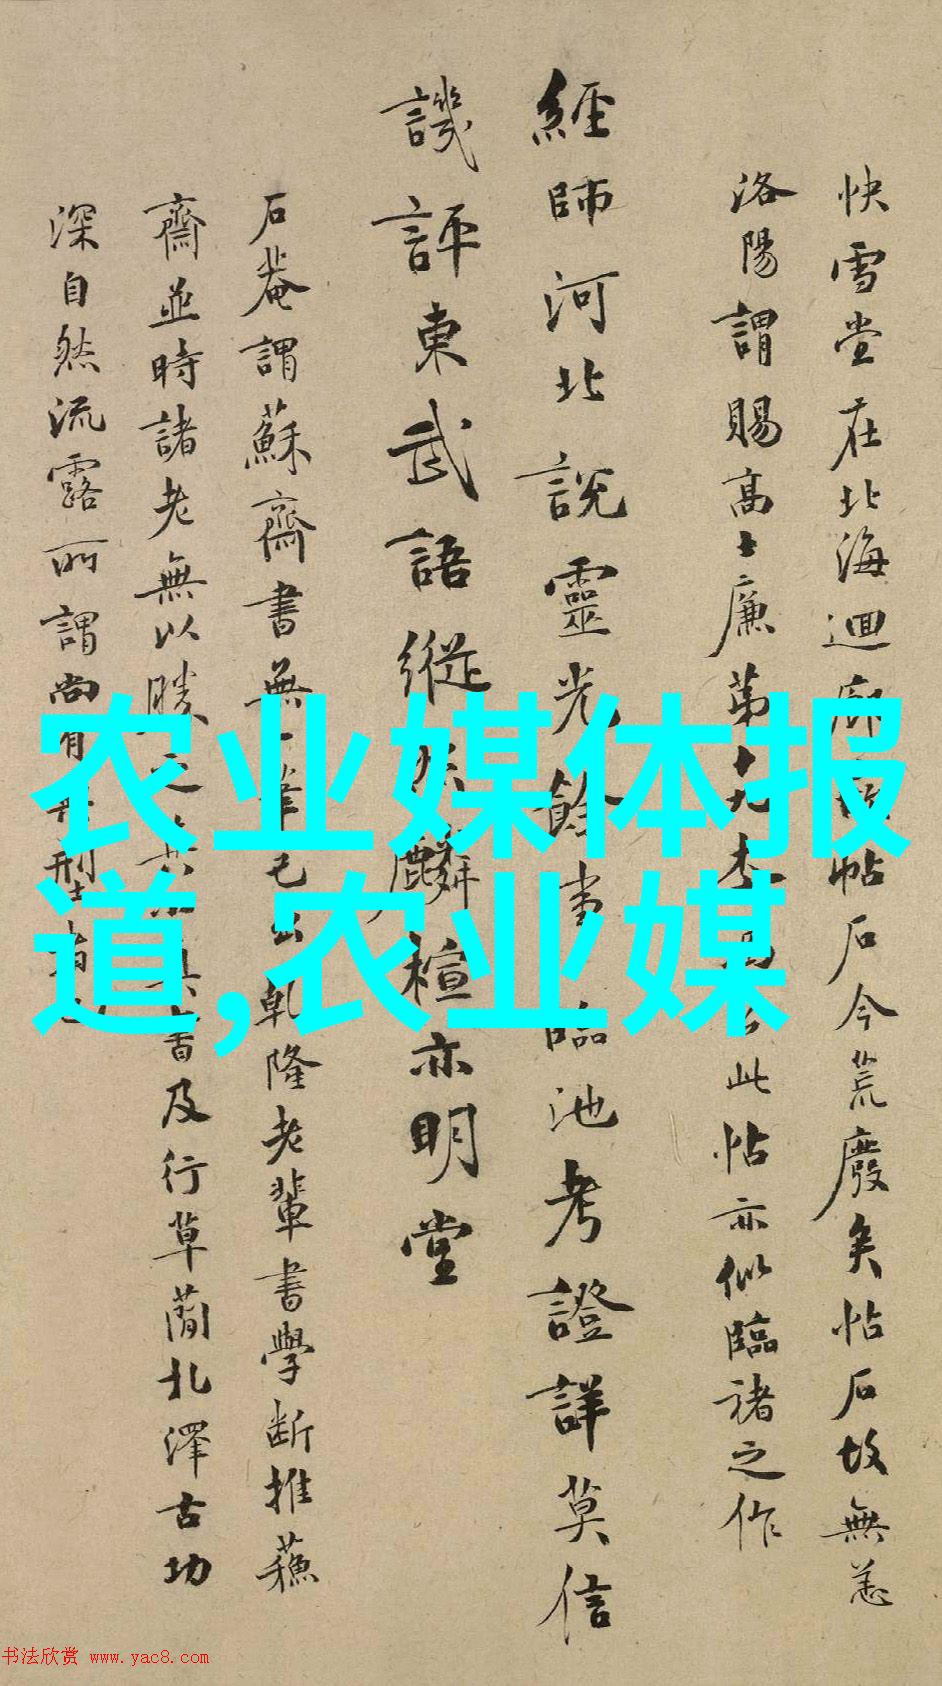 快雪堂在北海迴廊帖石今荒廢矣帖石故無恙
洛陽謂賜高士廉第十九此帖亦似臨褚之作
經師河北說靈光餘事臨池考證詳莫信
譏評東武語縱麟楦亦明堂
石菴謂蘇齋書無一筆己出乾隆老輩書學斷推蘇
齋並時諸老無以勝之書及行草簡札澤古功
深自然流露所謂尚有典型
农业媒体报
道,农业媒
书法欣赏 www.yac8.com